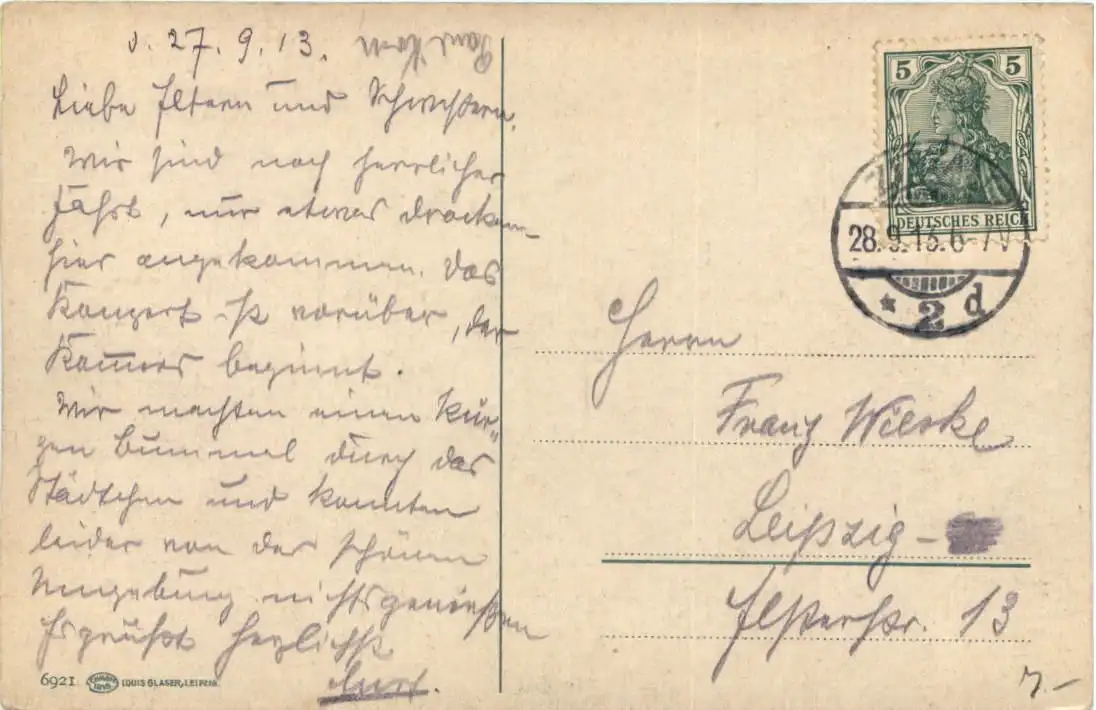 d. 27.9.13.
Liebe Eltern und Schwestern.
Wir sind nach herrlicher
Fahrt, nur etwas drocken
hier angekommen. Das
Konzert ist vorüber, der
Kom̄ers beginnt.
Wir machten einen kur„
zen Bummel durch das
Städtchen und konnten
leider von der schönen
Umgebung nichts genießen
Es grüßt herzlichst
Kurt.
6921
LOUIS GLASER, LEIPZIG.
5 5
DEUTSCHES REICH
28.9.13.6-7V
* 2 d
Herrn
Franz Wieske
Leipzig-
Elsterstr. 13
7.-